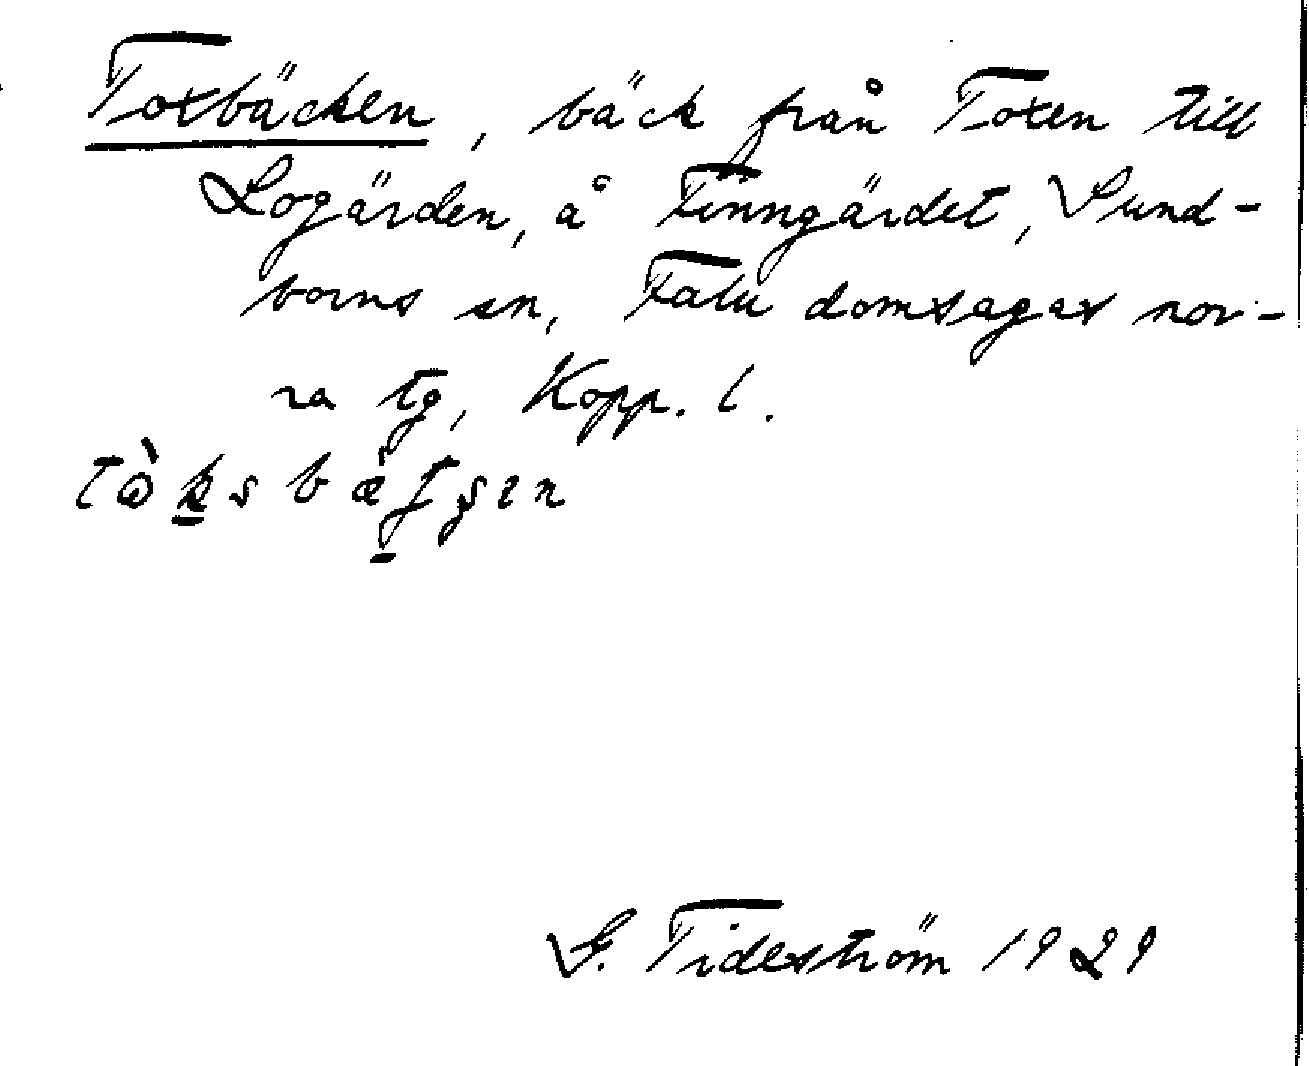 Toxbäcken, bäck från Toxen till
Logärden, å Finngärdet, Sund-
borns sn, Falu domsagas nor-
ra tg, Kopp. l.
G. Tideström 1929